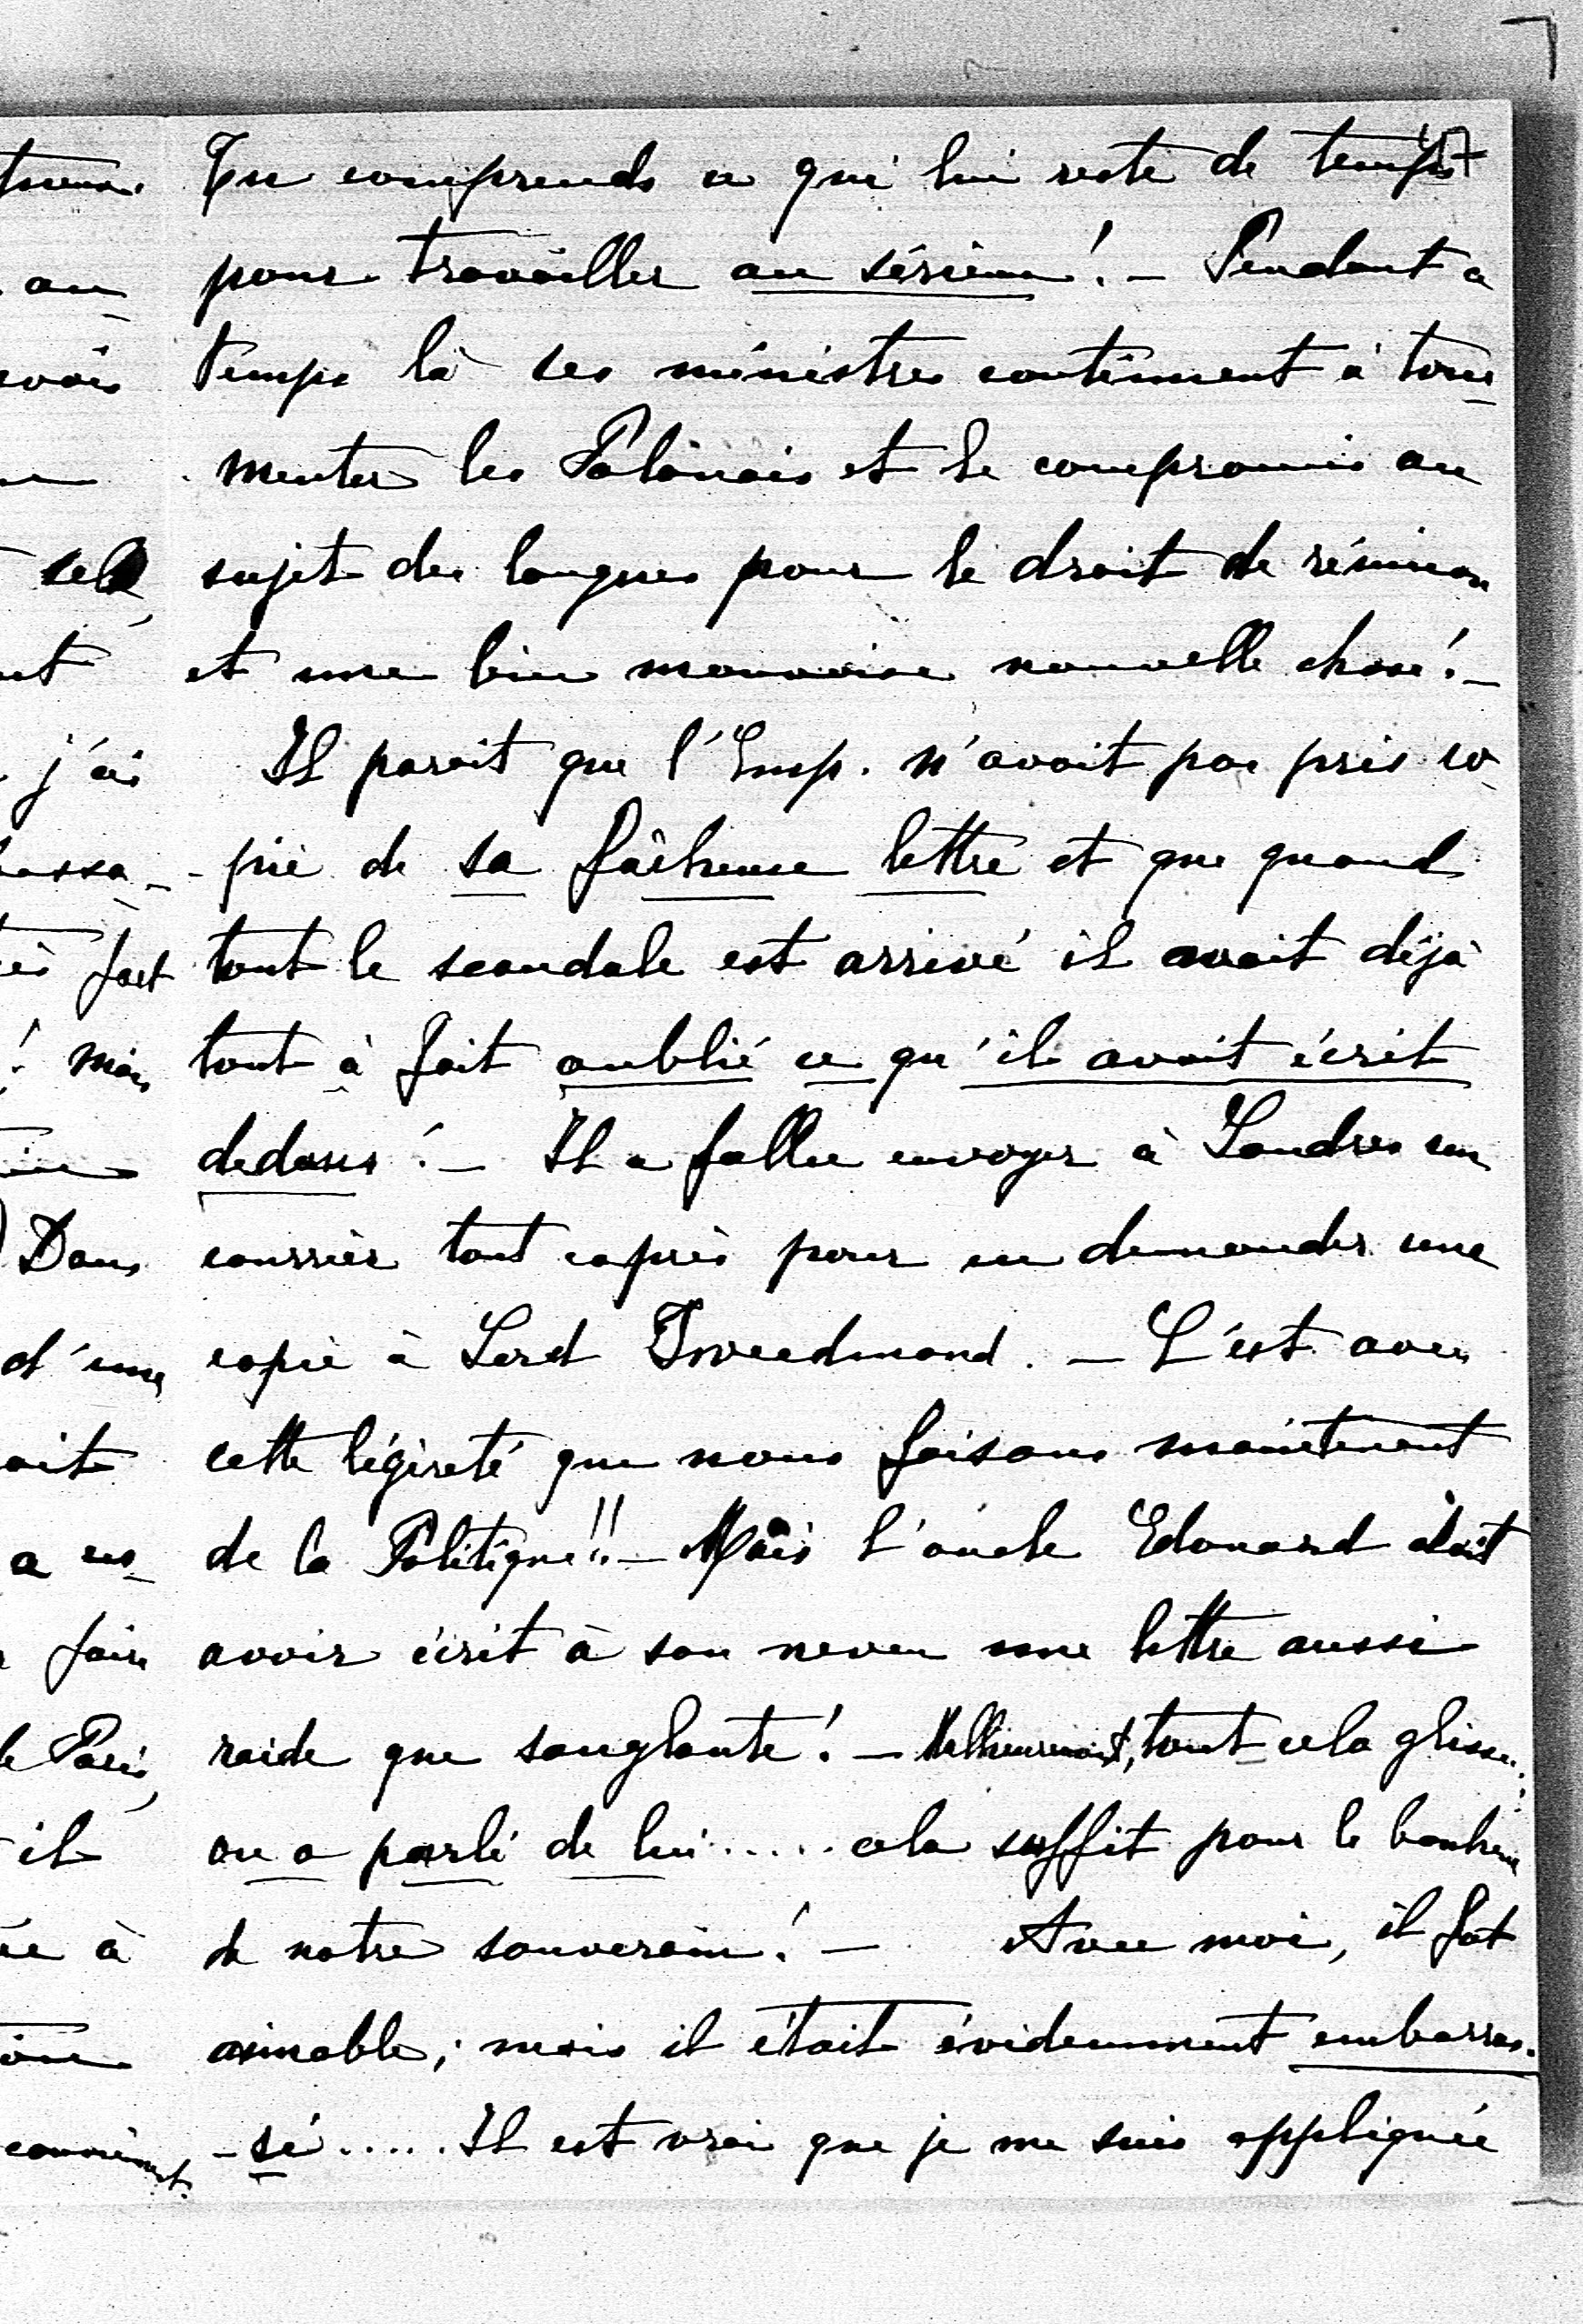 47
Tu comprends ce qui lui reste de temps
pour travailler au sérieux! — Pendant ce
temps là ses ministres continuent à tour-
menter les Polonais et le compromis au
sujet des langues pour le droit de réunion
est une bien mauvaise nouvelle chose! —
Il parait que l'Emp. n'avait pas pris co-
- pie de sa fâcheuse lettre et que quand
tout le scandale est arrivé il avait déjà
tout à fait oublié ce qu'il avait écrit
dedans! — Il a fallu envoyer à Londres un
courrier tout exprès pour en demander une
copie à Lord Tweedmond. — C'est avec
cette légèreté que nous faisons maintenant
de la Politique!! — Mais l'oncle Edouard doit
avoir écrit à son neveu une lettre aussi
raide que sanglante! — Malheureusement, tout cela glisse;
on a parlé de lui ..... cela suffit pour le bonheur
de notre souverain! — Avec moi, il fut
aimable; mais il était évidemment embarras-
- sé ..... Il est vrai que je me suis appliquée